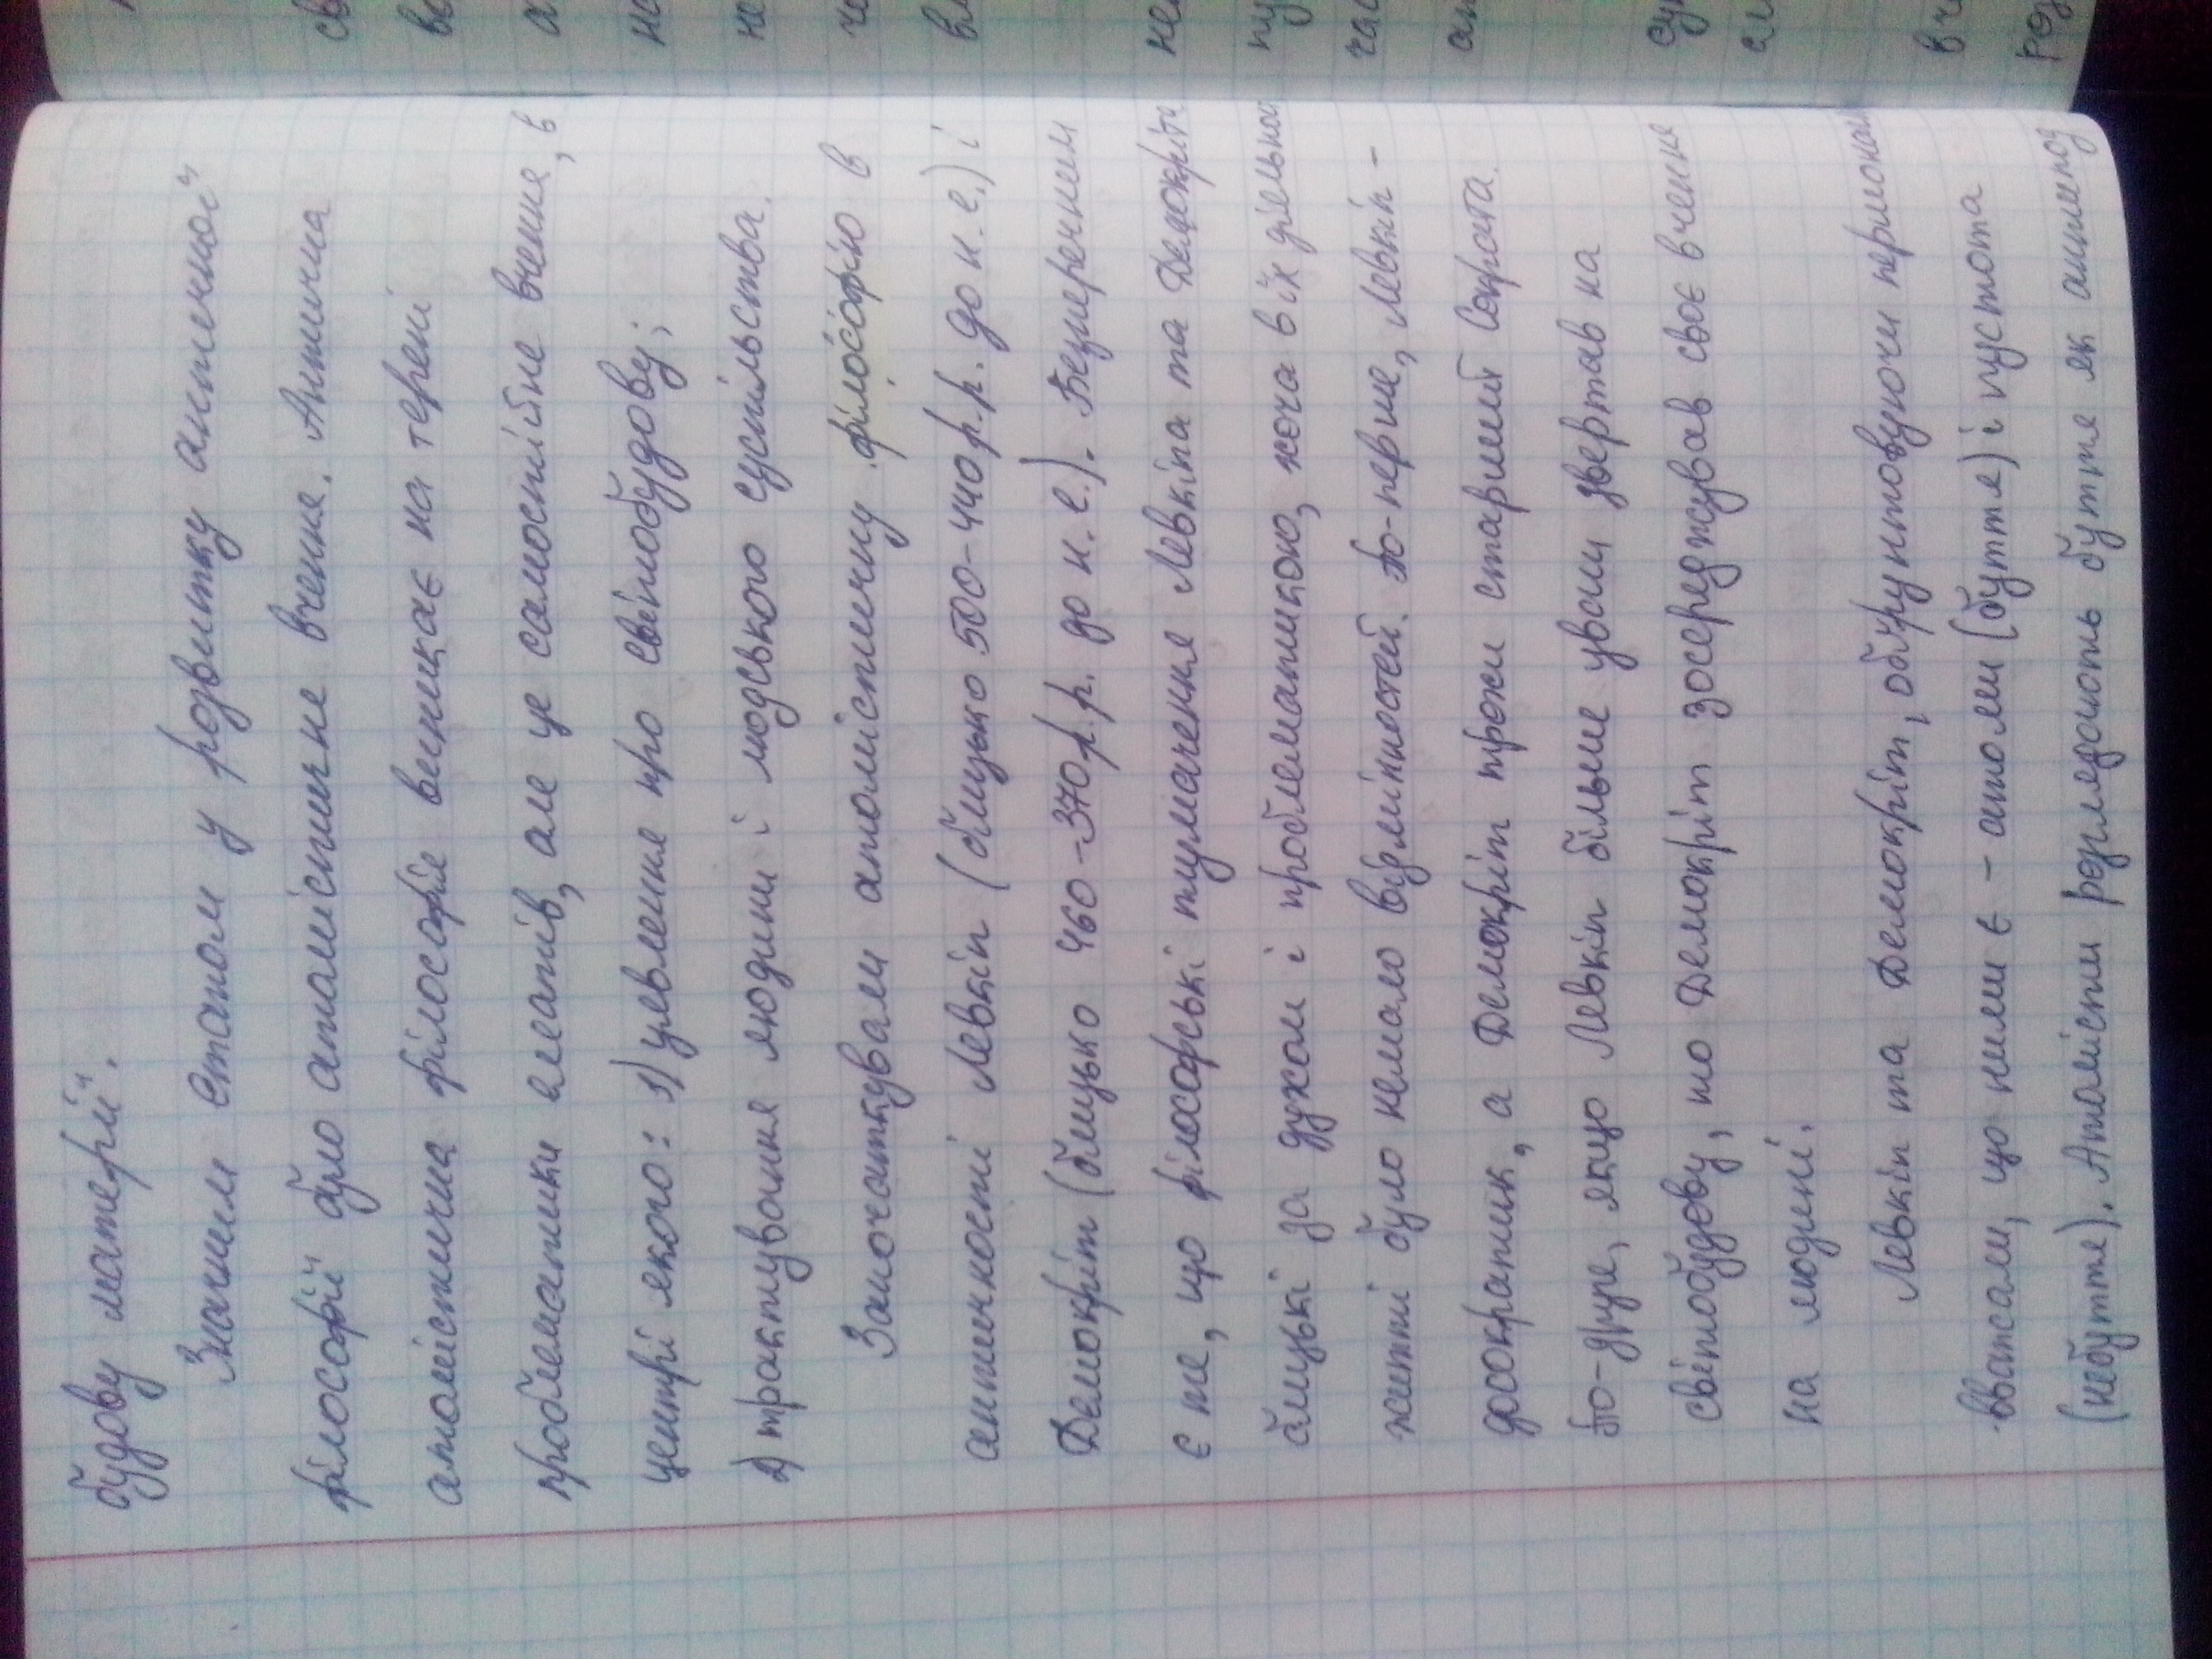 будову матерії.
Значним етапом у розвитку античної
філософії було атомістичне вчення. Антична
атомістична філософія виникає на терені
проблематики елеатів, але це самостійне вчення, в
центрі якого: 1) уявлення про світобудову;
2) трактування людини і людського суспільства.
Започаткували атомістичну філософію в
античності Левкіп (близько 500-440 р.р. до н.е.) і
Демокріт (близько 460-370 р.р. до н.е.). Безперечним
є те, що філософські тлумачення Левкіпа та Демокріта
близькі за духом і проблематикою, хоча в їх
житті було немало відмінностей. По-перше, Левкіп -
досократик, а Демокріт трохи старший Сократа.
По-друге, якщо Левкіп більше уваги звертав на
світобудову, то Демокріт зосереджував своє вчення
на людині.
Левкіп та Демокріт, обґрунтовуючи
вважали, що ними є - атоми (буття) і пустота
(небуття). Атомісти розглядають буття як антипод